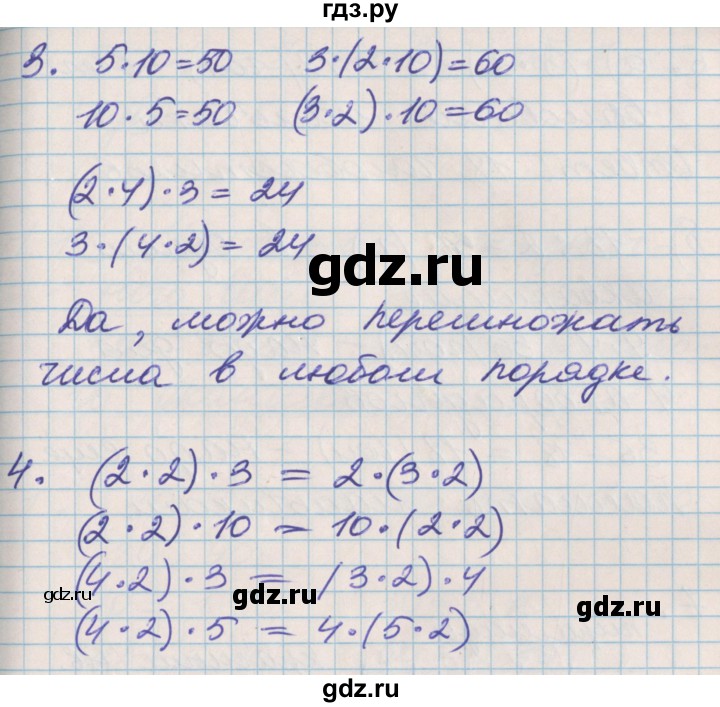 гдз.ру
3. 5·10=50 3·(2·10)=60
10·5=50 (3·2)·10=60
(2·4)·3=24
3·(4·2)=24
gdz.ru
Да, можно перемножать
числа в любом порядке.
4. (2·2)·3=2·(3·2)
(2·2)·10=10·(2·2)
(4·2)·3=(3·2)·4
gdz.ru gdz.ru gdz.ru
(4·2)·5=4·(5·2)
gdz.ru